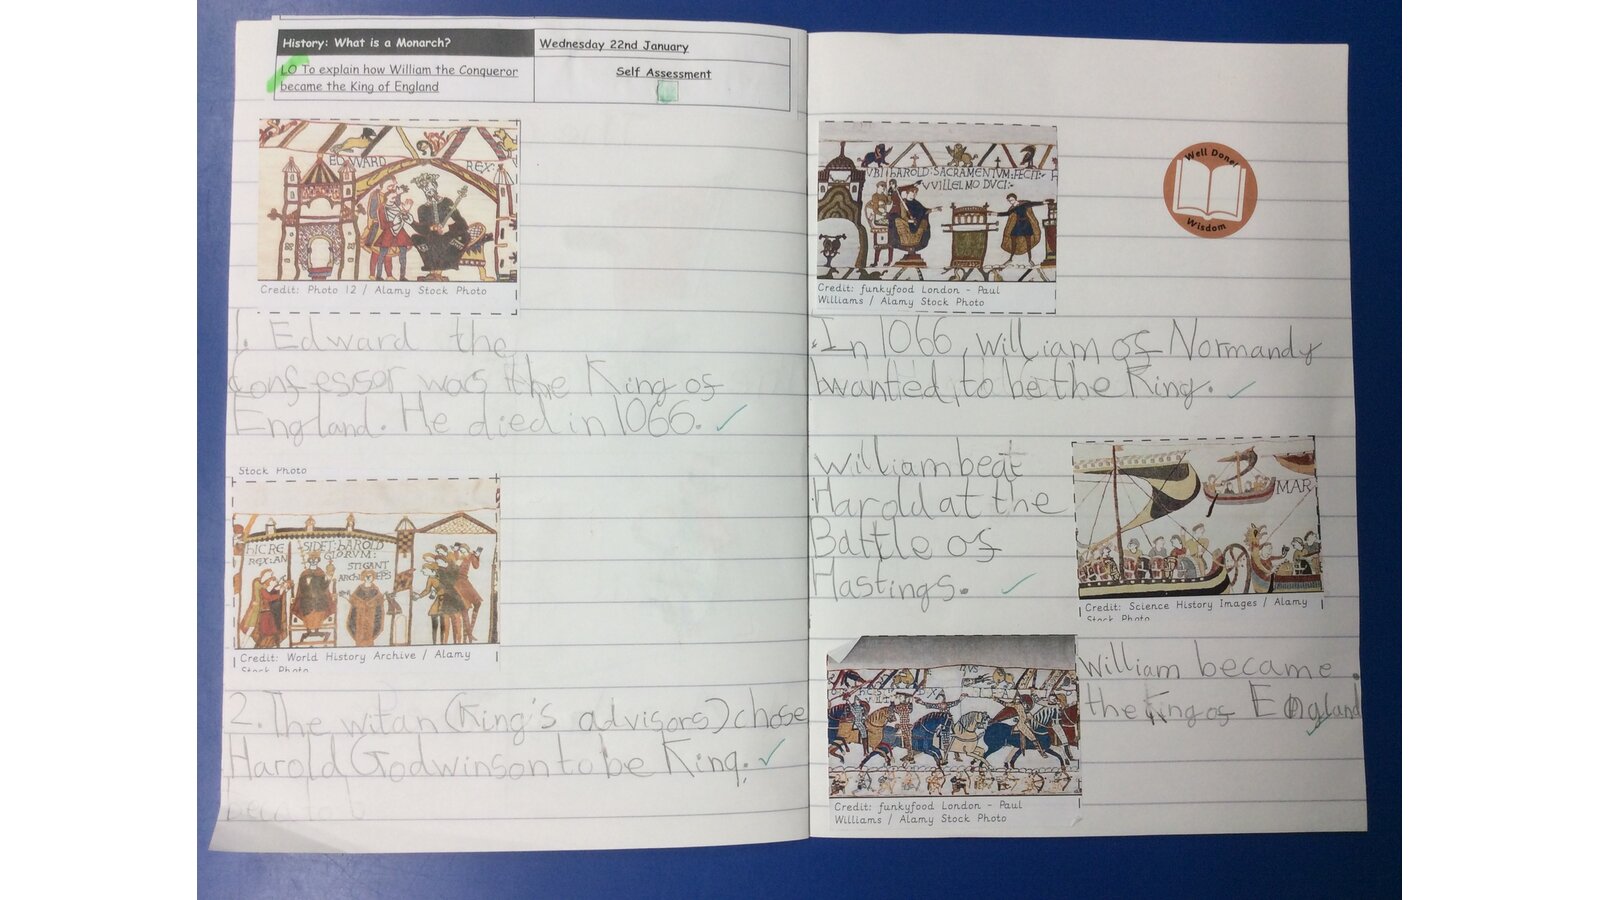 History: What is a Monarch?
Wednesday 22nd January
LO To explain how William the Conqueror
became the King of England
Self Assessment
EDWARD REX:
Credit: Photo 12 / Alamy Stock Photo
1. Edward the
Confessor was the King of
England. He died in 1066.
Stock Photo
HIC RE SIDET: HAROLD
REX: AN GLORUM:
STIGANT
ARCHI EPS
Credit: World History Archive / Alamy
Stock Photo
2. The witan (King's advisors) chose
Harold Godwinson to be King.
VBI HAROLD: SACRAMENTVM: FECIT:
VVILLELMO DVCI:
Credit: funkyfood London - Paul
Williams / Alamy Stock Photo
Well Done!
Wisdom
In 1066, william of Normandy
wanted to be the King.
William beat
Harold at the
Battle of
Hastings.
MAR
Credit: Science History Images / Alamy
Stock Photo
Credit: funkyfood London - Paul
Williams / Alamy Stock Photo
William became
the King of England